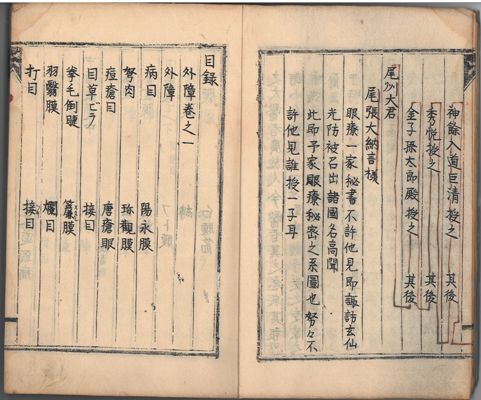 神餘入道巨清授之 其後
秀悦授之 其後
金子孫太郎殿授之 其後
尾州大君
尾張大納言様
眼療一家秘書不許他見即諏訪玄仙
光防被召出諸國名高聞
此即予家眼療秘密之系圖也努々不
許他見誰授一子耳
目録
外障巻之一
外障
病目 陽永膜
努肉 珎觀膜
痘瘡目 唐瘡眼
目草亡ラ 接目
拳毛倒睫 簾膜
羽翳膜 爛目
打目 接目